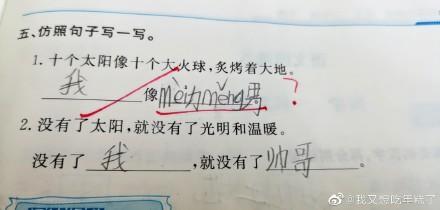 五、仿照句子写一写。
1. 十个太阳像十个大火球,炙烤着大地。
我像mèi力měng男?
2. 没有了太阳,就没有了光明和温暖。
没有了我,就没有了帅哥。
@我又想吃年糕了